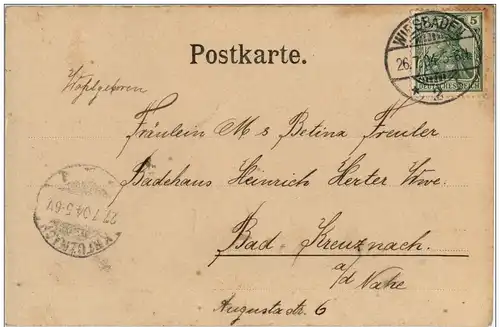 Postkarte.
WIESBADEN
26.7.04
5
DEUTSCHES REICH
Wohlgeboren
Fräulein M s Betina Freuler
Badehaus Heinrich Herter Wwe.
Bad Kreuznach.
a/d
Nahe
Augustastr. 6
KREUZNACH
27.7.04.5-6V